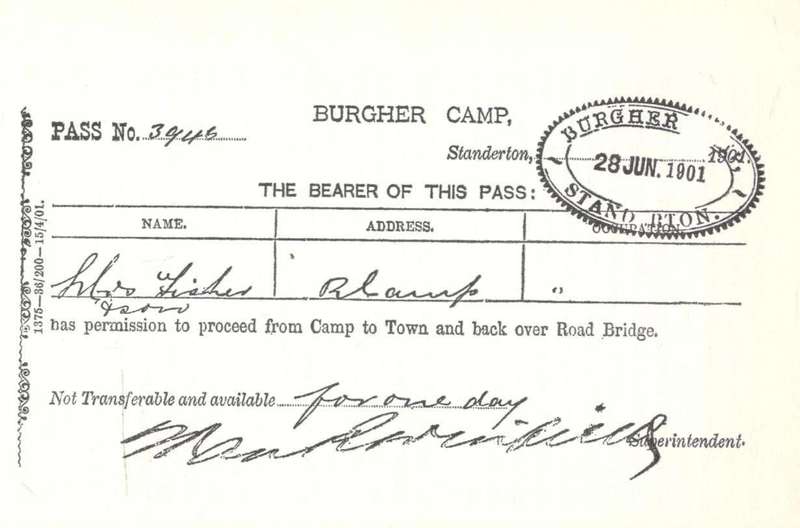 BURGHER CAMP,
PASS No. 3946
Standerton, 1901.
BURGHER
28 JUN. 1901
STAND RTON.
THE BEARER OF THIS PASS:
NAME. ADDRESS. OCCUPATION.
Mrs Fisher B Camp "
& son
has permission to proceed from Camp to Town and back over Road Bridge.
Not Transferable and available for one day
Superintendent.
1375—36/200—15/4/01.